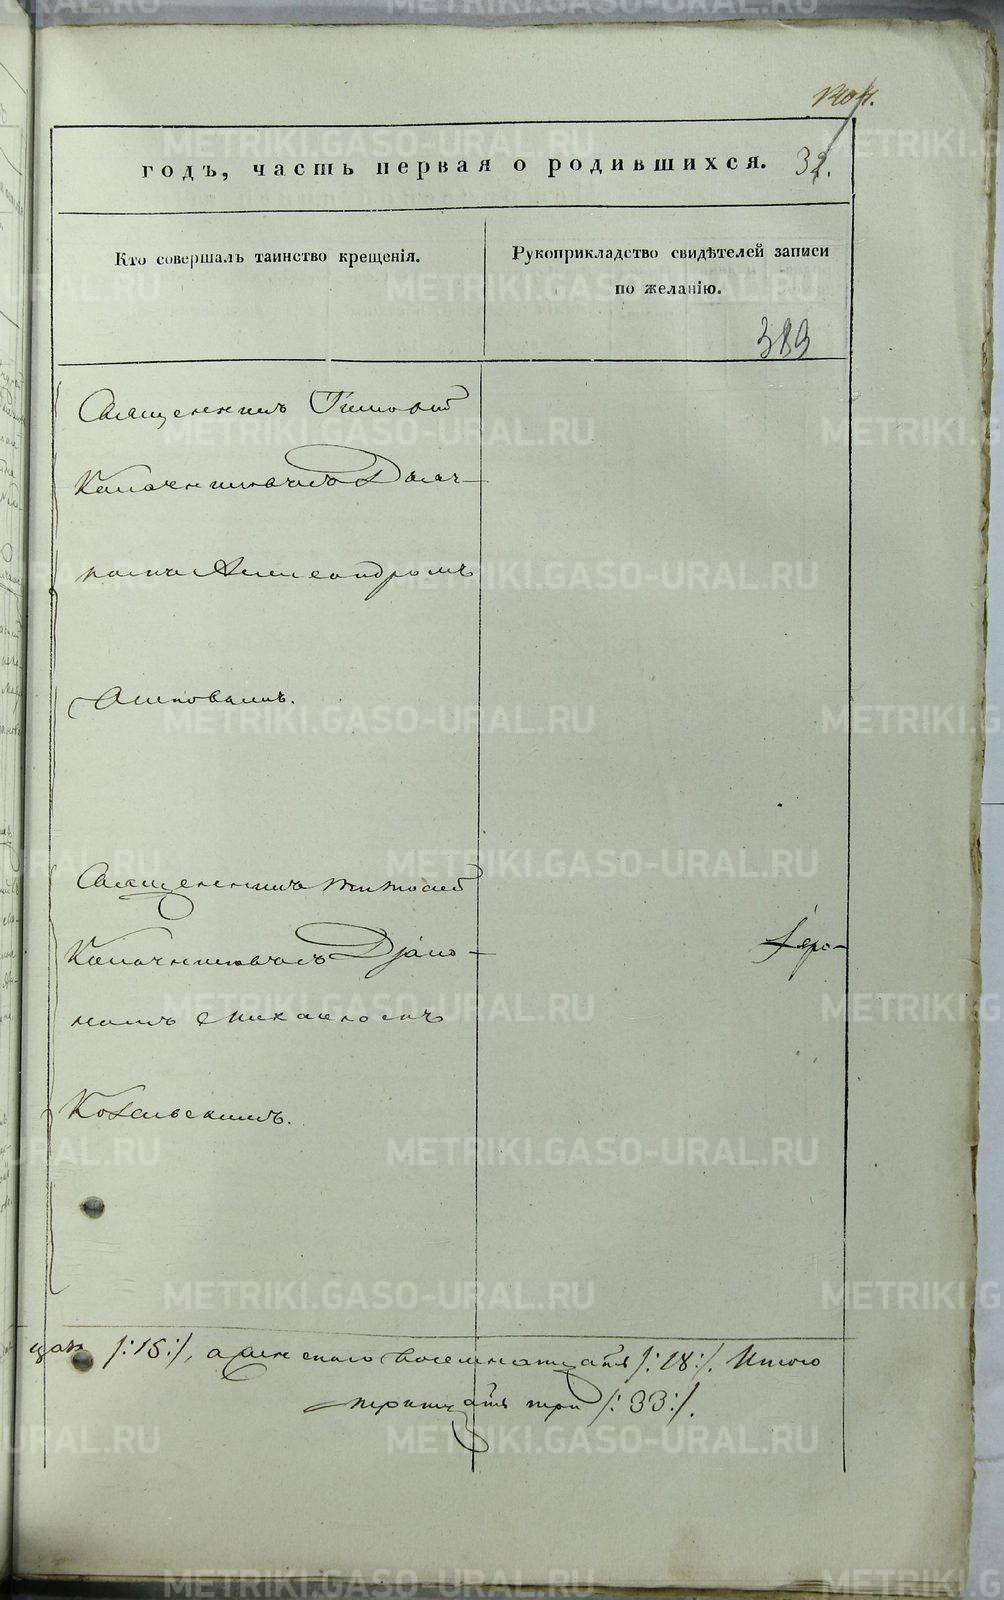 годъ, часть первая о родившихся. 32.
Кто совершалъ таинство крещенія.
Рукоприкладство свидѣтелей записи
по желанію.
383
Священникъ Тимофей
Калачниковъ съ Діач-
комъ Александромъ
Священникъ Тимофей
Калачниковъ съ Діако-
номъ Михаиломъ
Ковальскимъ.
/:15:/, а женскаго восемнатцать /:18:/. Итого
тритцать три /:33:/.
METRIKI.GASO-URAL.RU